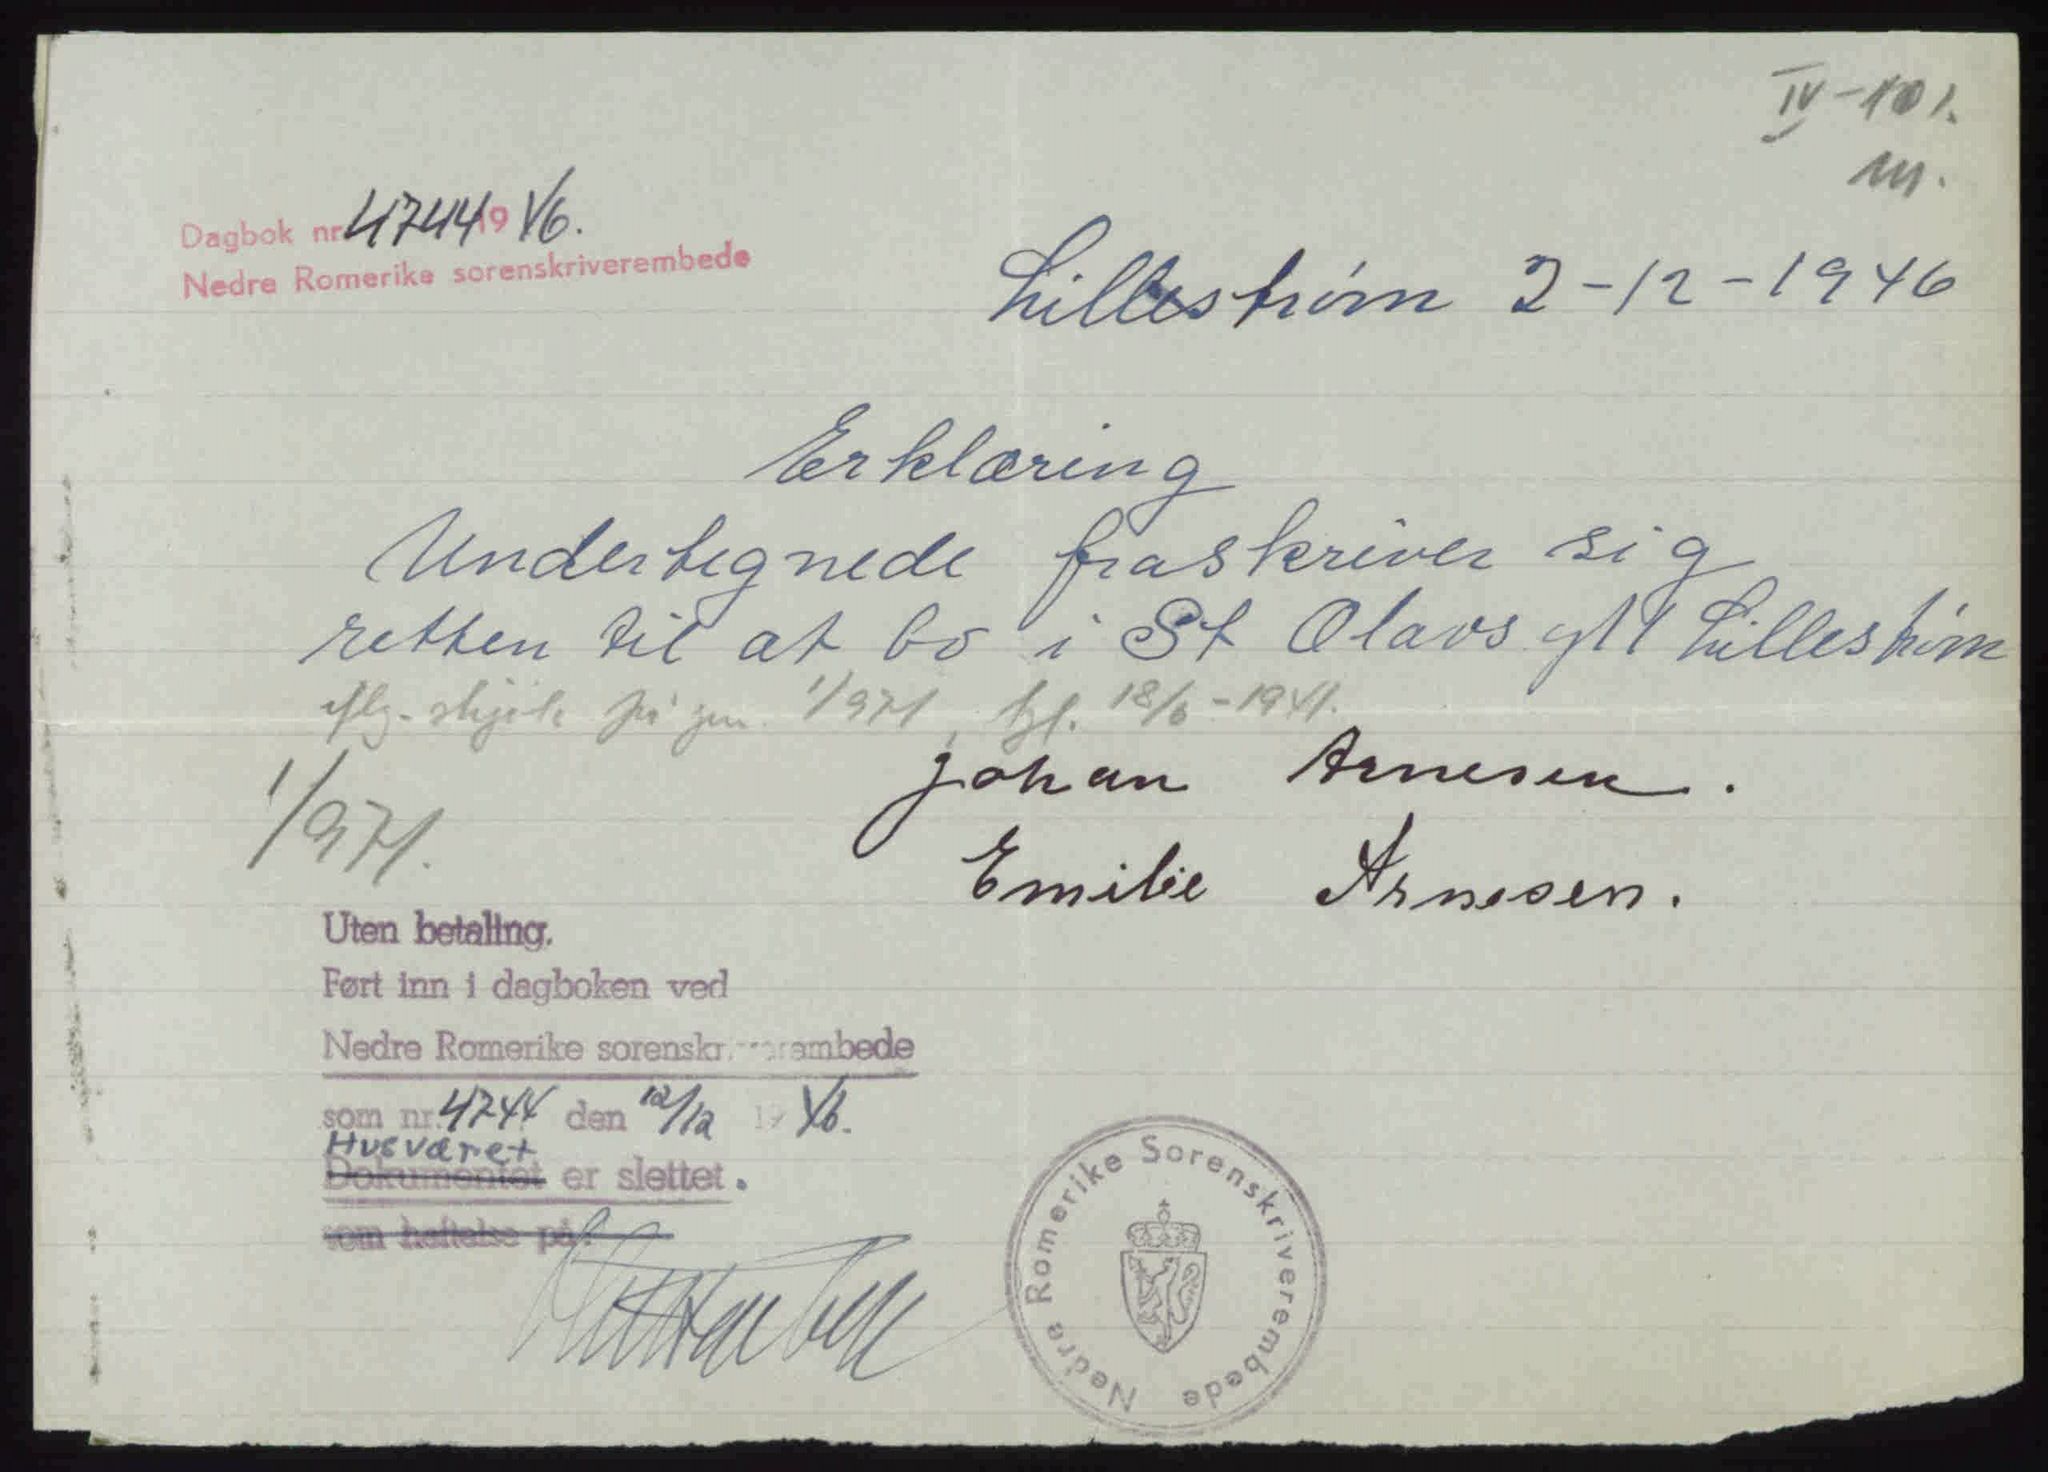 IV-101.
Dagbok nr 4744 1946.
Nedre Romerike sorenskriverembede
Lillestrøm 2-12-1946
Erklæring
Undertegnede fraskriver sig
retten til at bo i St Olavs gt 1 Lillestrøm
iflg. skjøte på 1/971, tgl. 18/6-1941.
Johan Arnesen.
1/971.
Emilie Arnesen.
Uten betaling.
Ført inn i dagboken ved
Nedre Romerike sorenskriverembede
som nr. 4744 den 12/12 1946.
Husværet
Dokumentet er slettet.
som heftelse på
Nedre Romerike Sorenskriverembede